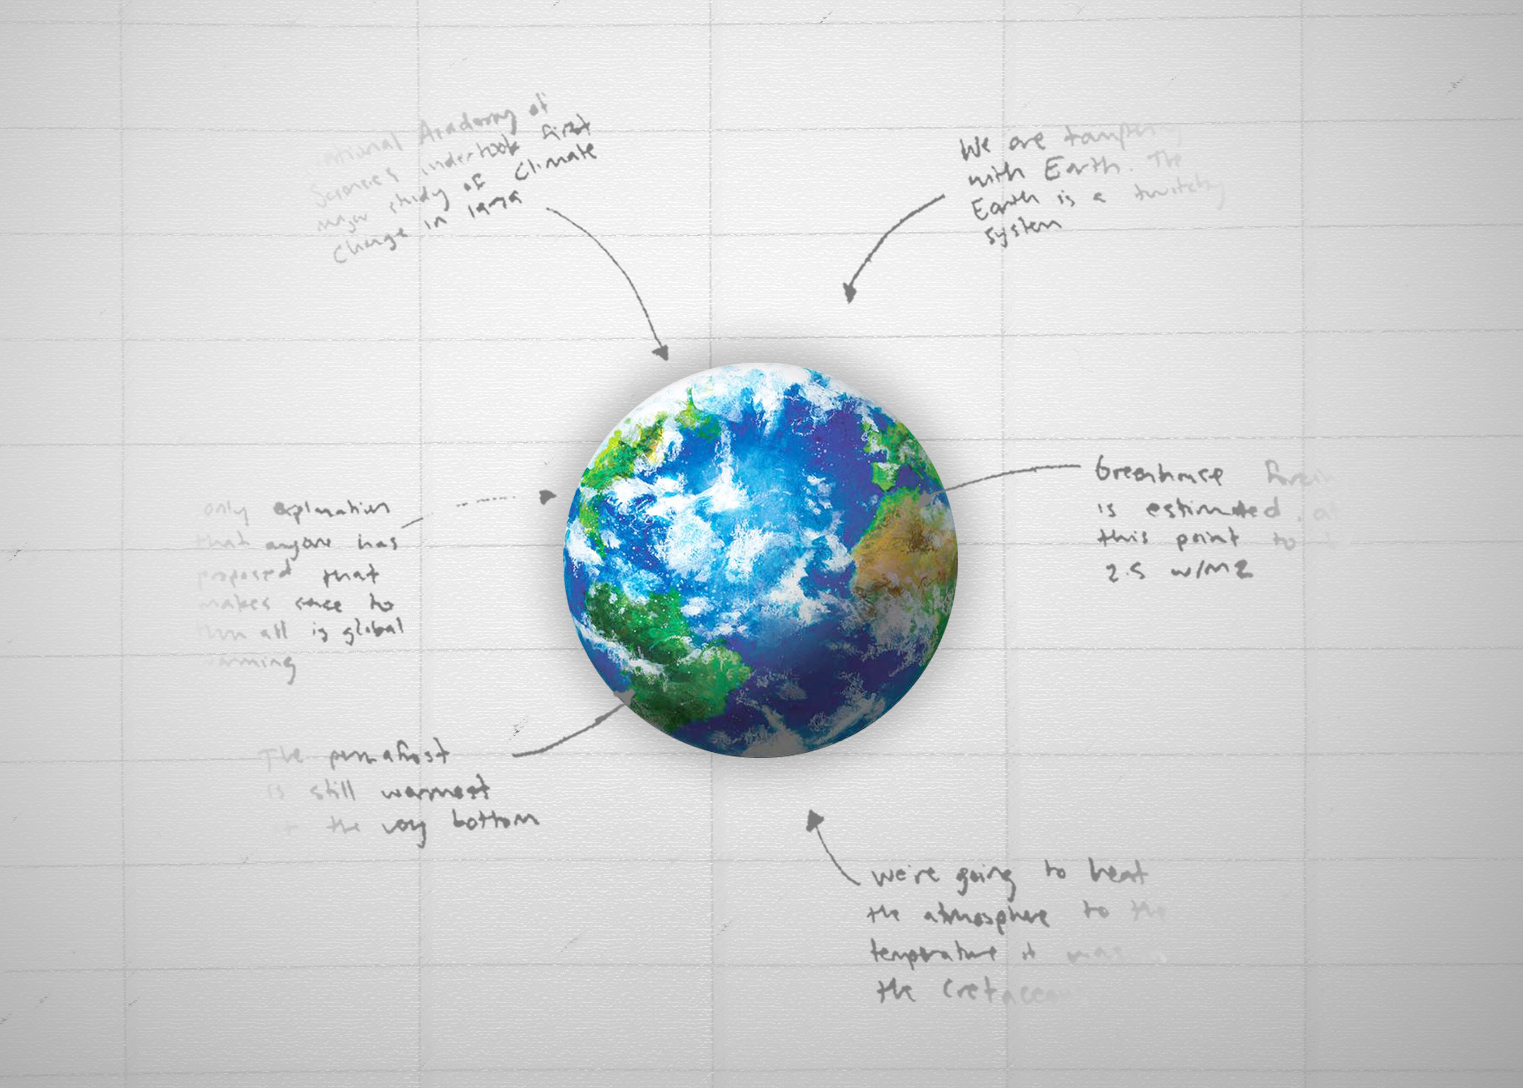 Academy of
Sciences undertook first
major study of Climate
Change in 1979
We are
with Earth. The
Earth is a twitchy
system
only explanation
that anyone has
proposed that
makes sence to
them all is global
warming
Greenhouse
is estimated at
this point to
2.5 W/M2
The permafrost
is still warmest
the very bottom
we're going to heat
the atmosphere to the
temperature it was
the